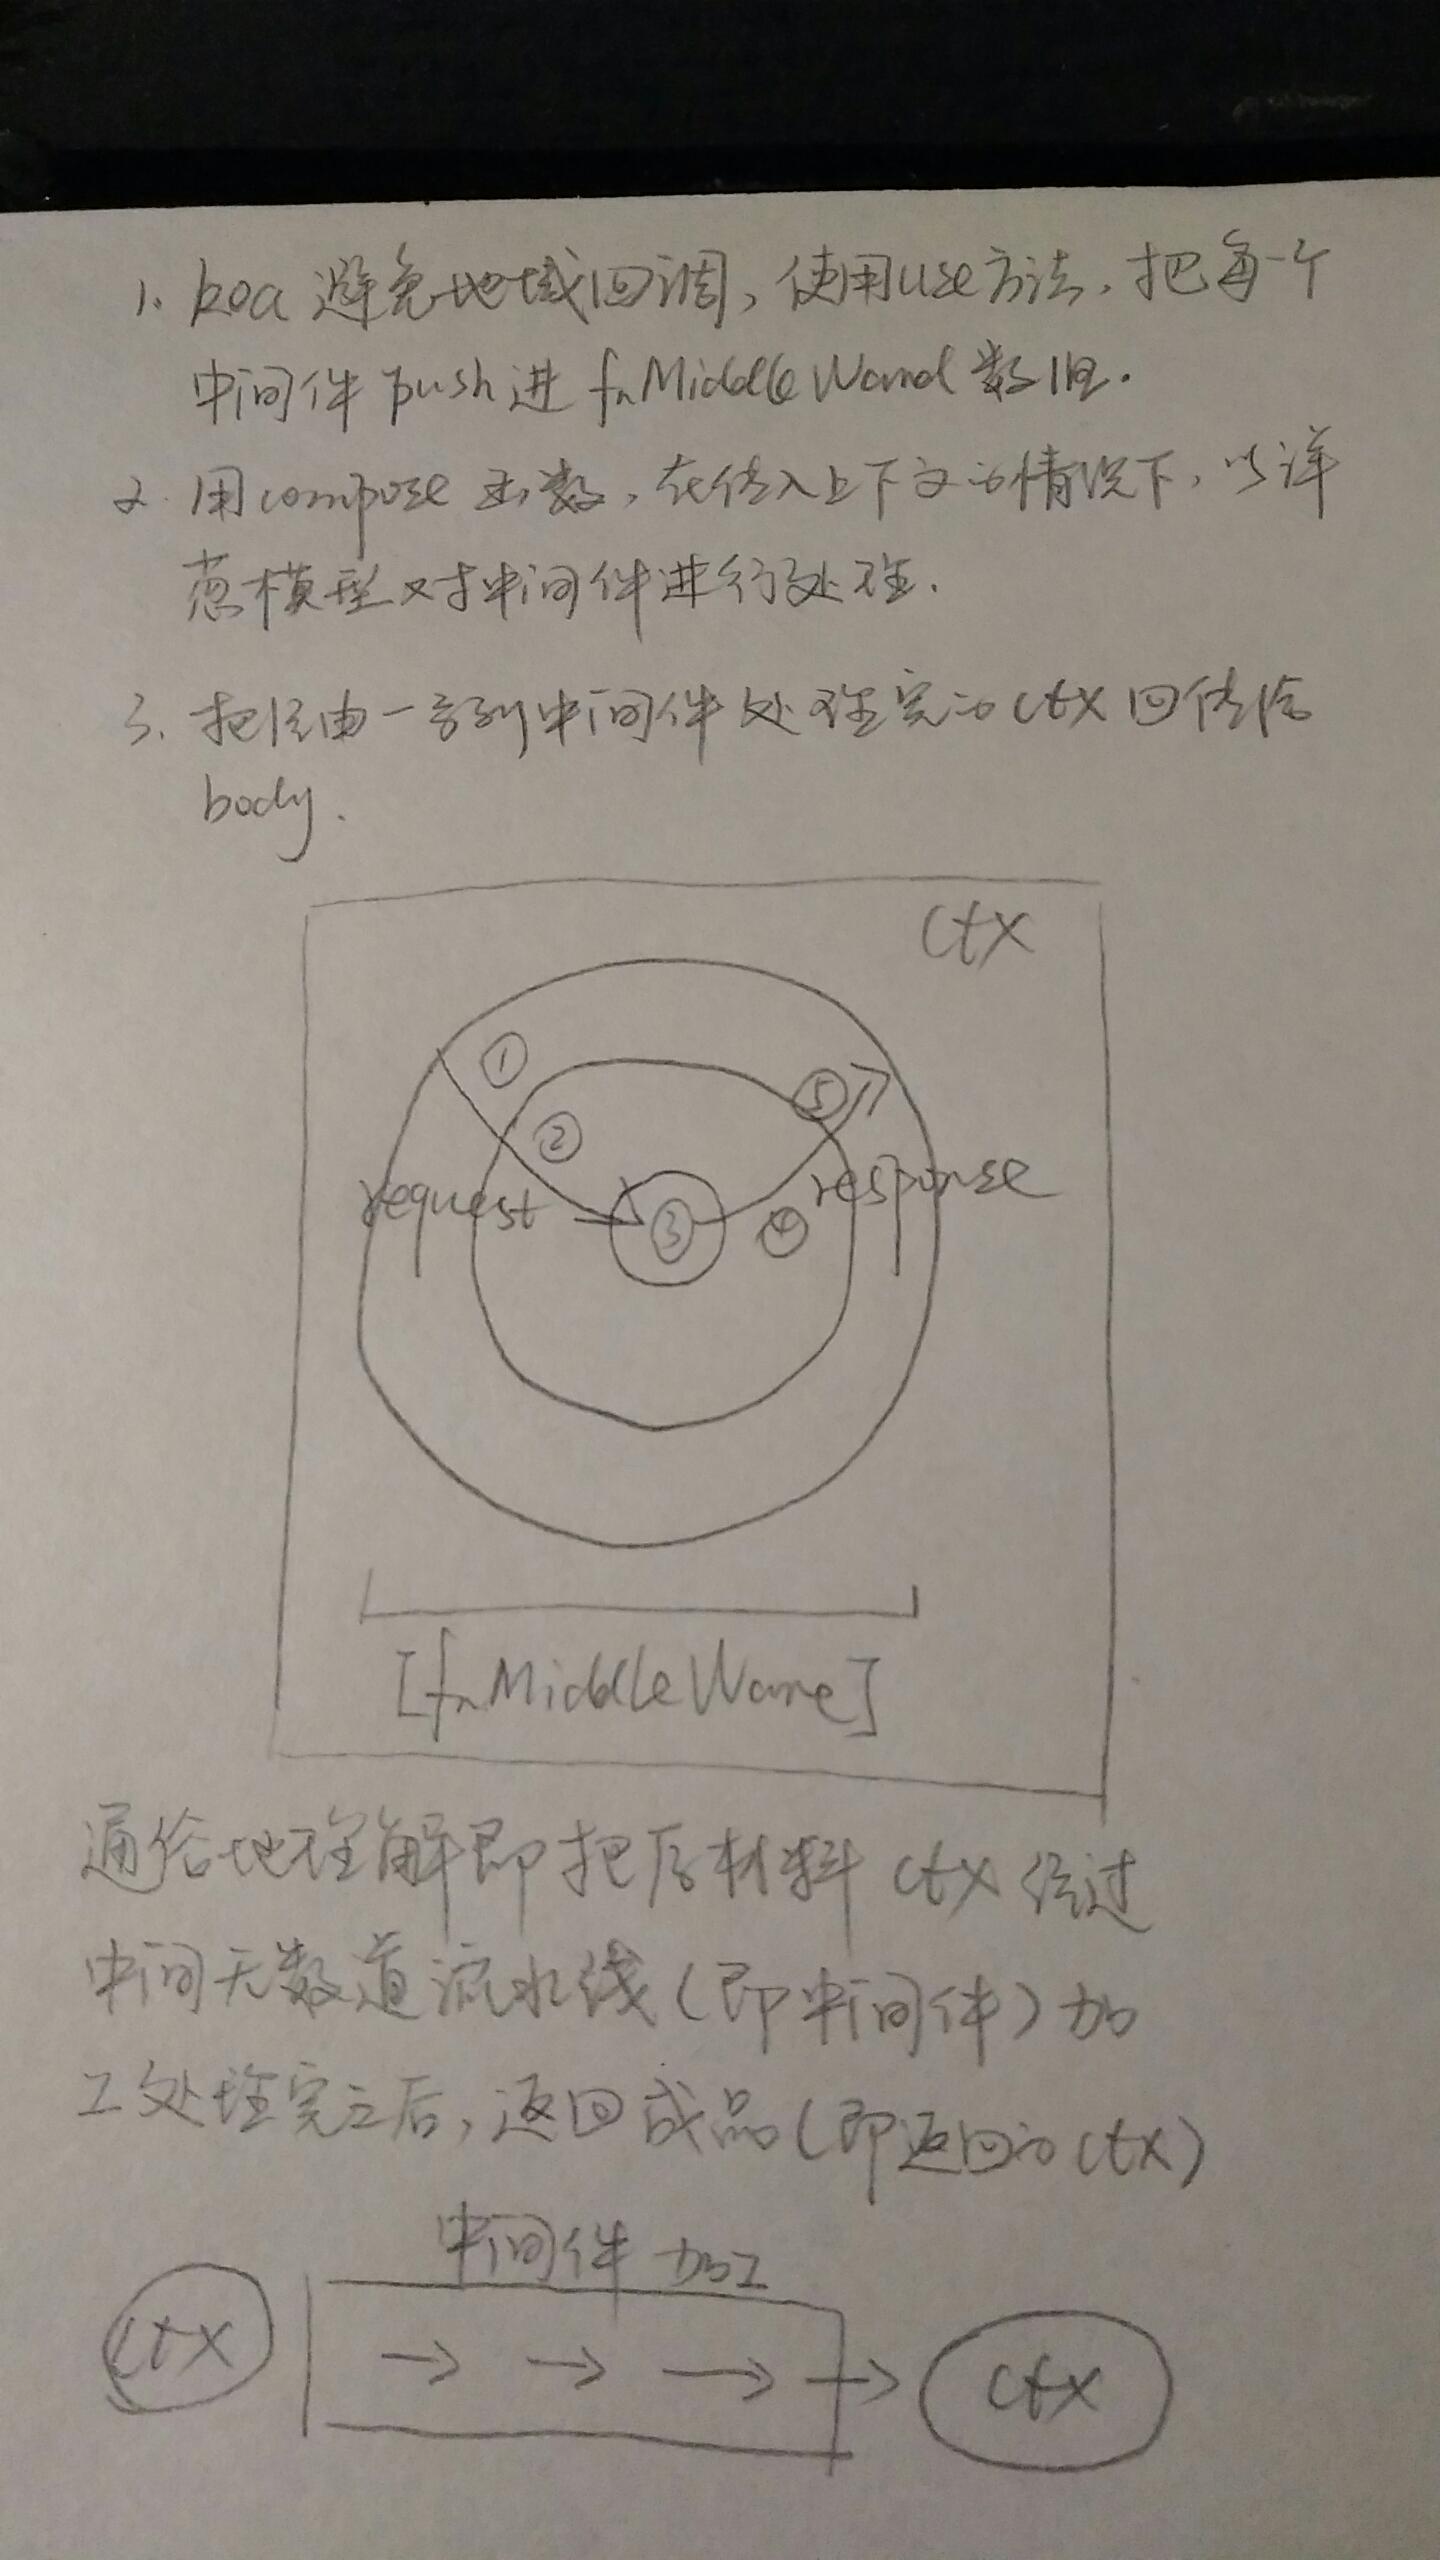 1. koa 避免地域回调，使用use方法，把每一个
中间件 push 进 fnMiddleWand 数组.
2. 用 compose 函数，在传入上下文的情况下，以洋
葱模型对中间件进行处理.
3. 把经由一系列中间件处理完的ctx回传给
body.
ctx
①
②
⑤
request
③
④
response
[fnMiddleWare]
通俗地理解即把原材料 ctx 经过
中间无数道流水线(即中间件)加
工处理完之后，返回成品(即返回的ctx)
中间件 加工
ctx
→ → → →
ctx